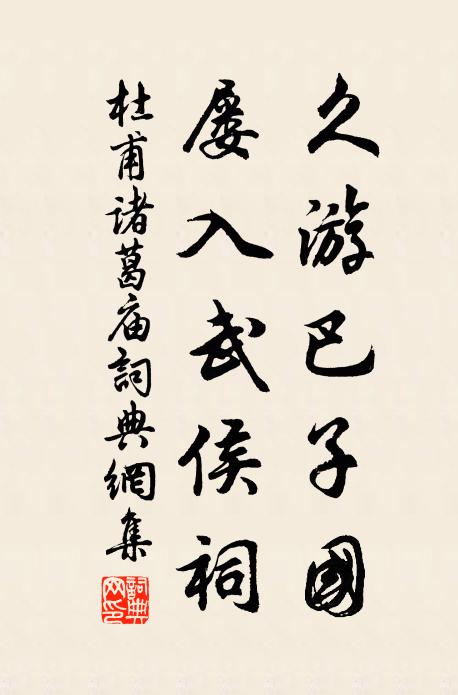 久游巴子國
屡入武侯祠
杜甫诸葛庙詞典網集
詞典网印